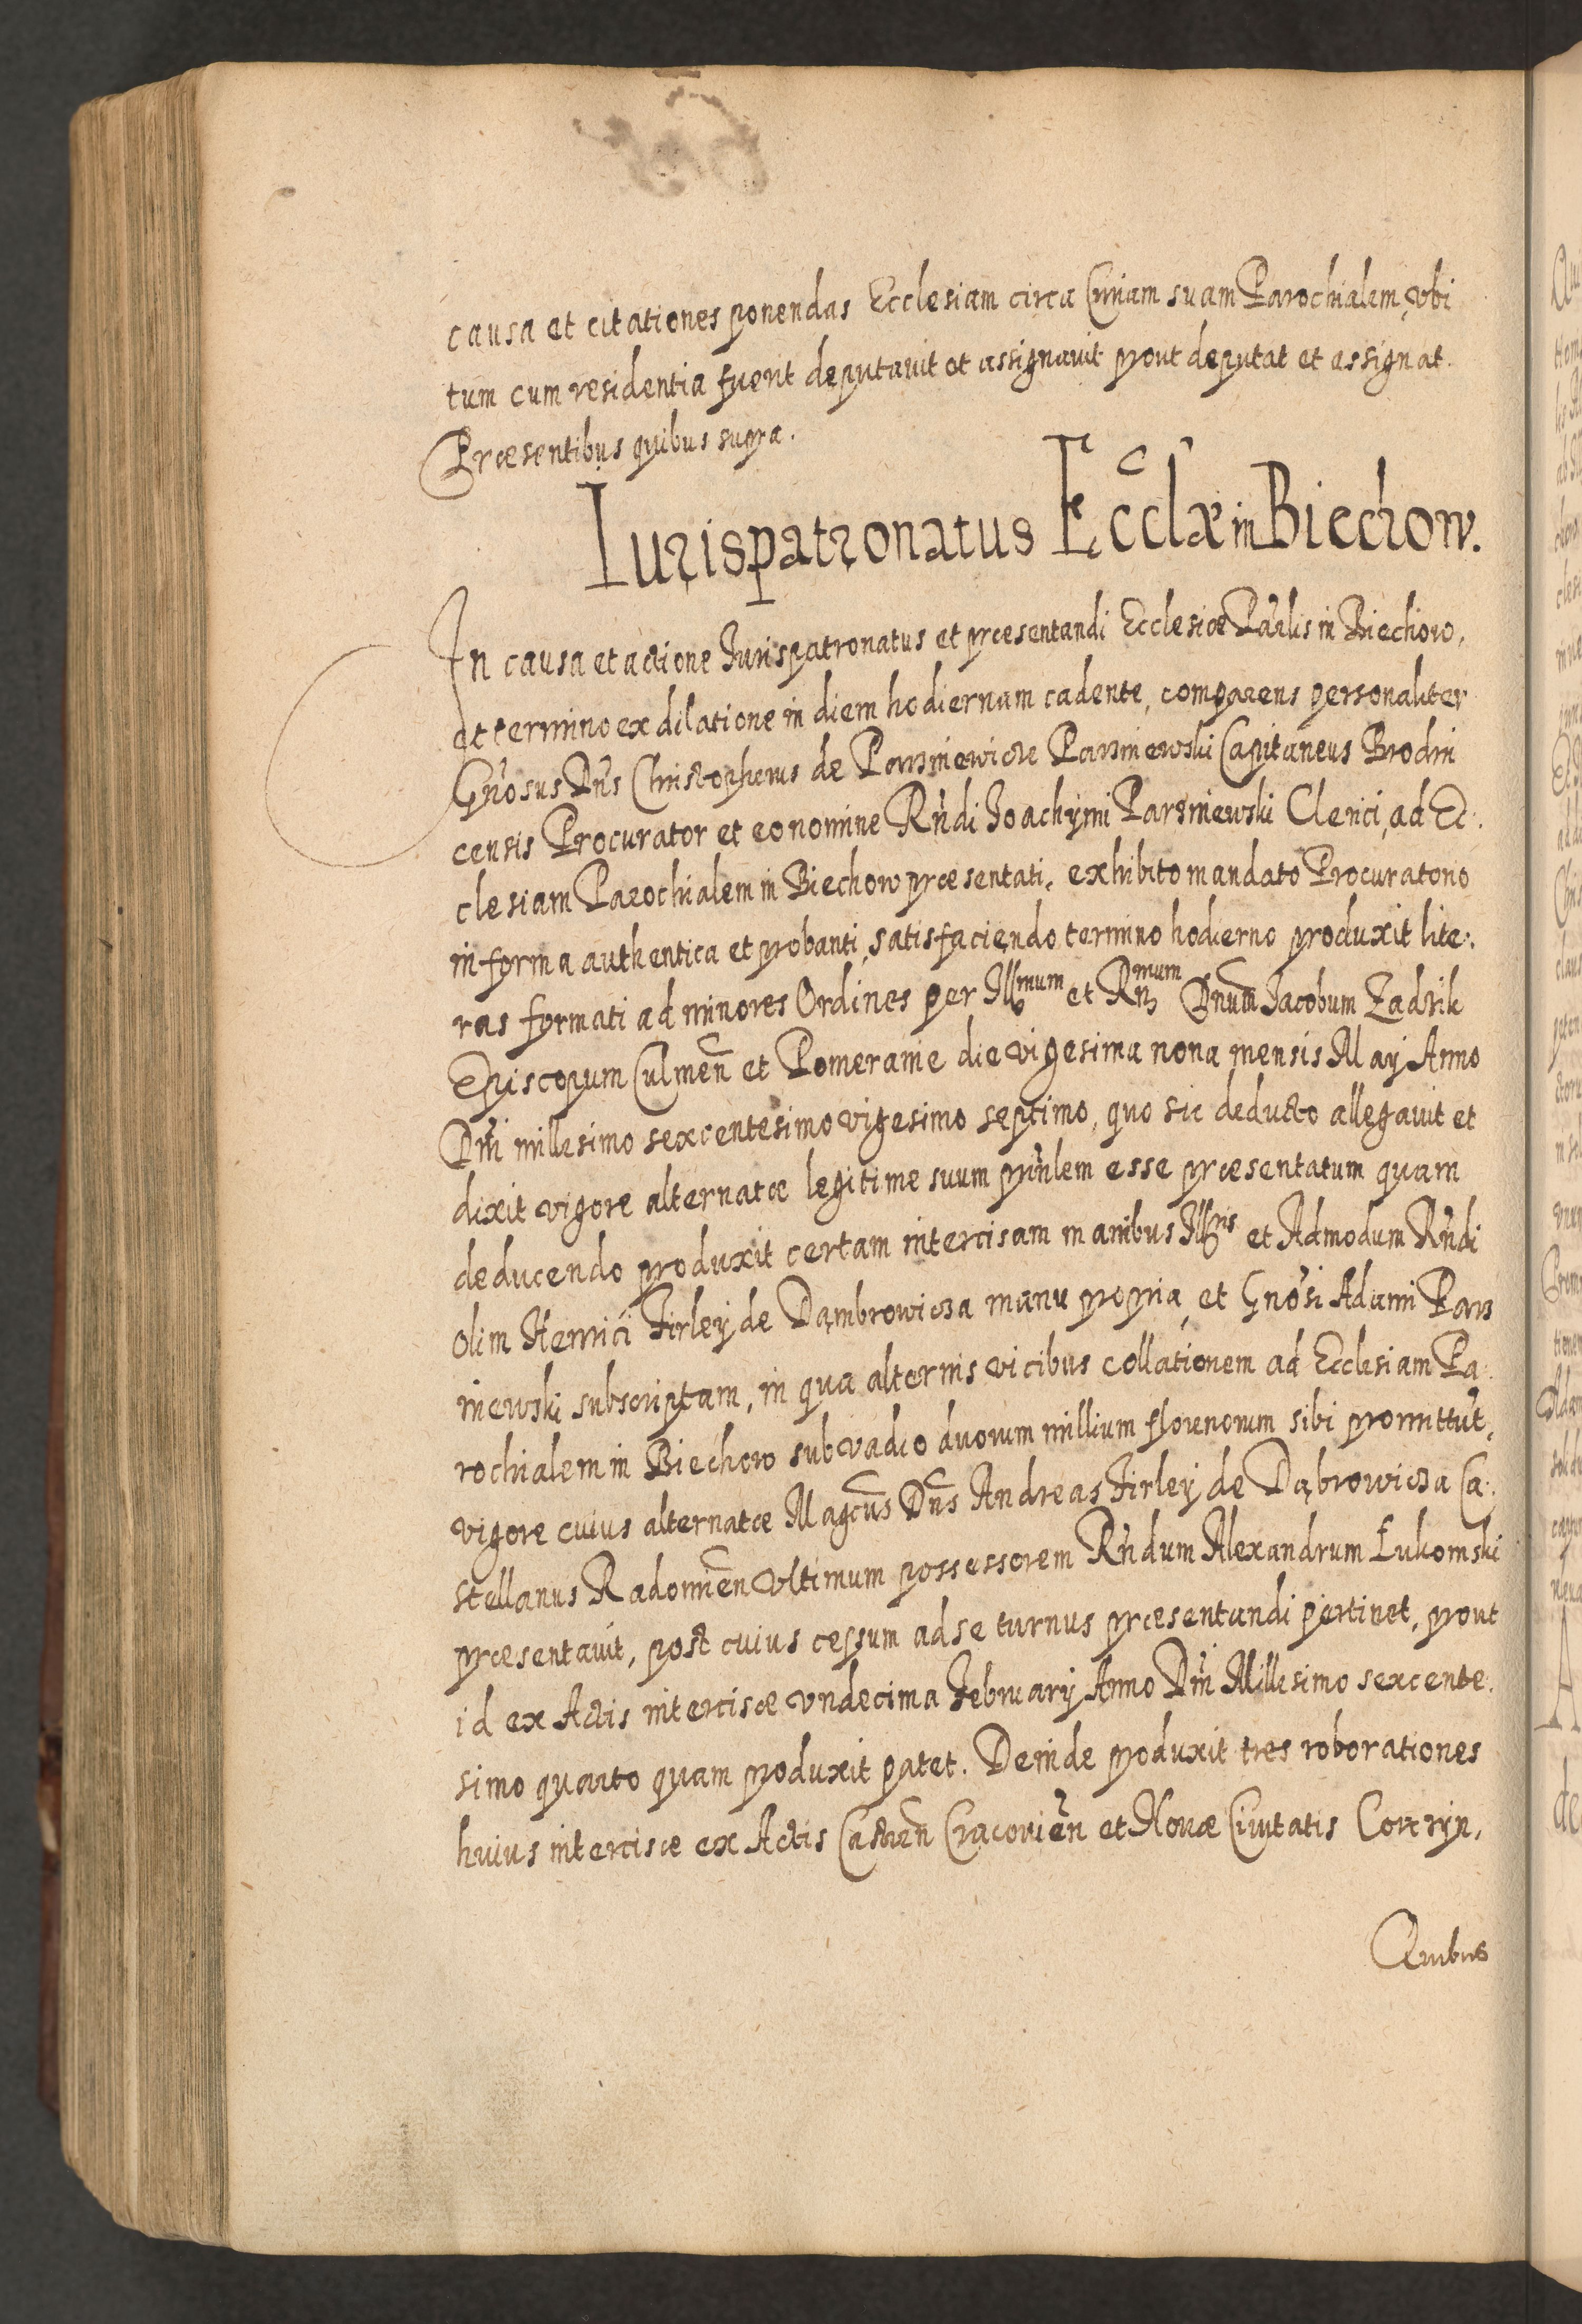 causa et citationes ponendas Ecclesiam circa Curiam suam Parochialem, vbi
tum cum residentia fuerit deputauit et assignauit prout deputat et assignat.
Præsentibus quibus supra.
Iurispatronatus Eccłæ in Biechow.
In causa et actione Jurispatronatus et præsentandi Ecclesiæ Parlis in Biechow,
et termino ex dilatione in diem hodiernum cadente, comparens personaliter
Gnosus Dns Christopherus de Parzniewicze Parzniewski Capitaneus Brodni
censis Procurator et eo nomine Rndi Joachymi Parzniewski Clerici, ad Ec:
clesiam Parochialem in Biechow præsentati, exhibito mandato Procuratorio
in forma authentica et probanti, satisfaciendo termino hodierno produxit lite:
ras formati ad minores Ordines per Illmum et Rndmum Dnum Jacobum Zadzik
Episcopum Culmen et Pomeranie die vigesima nona mensis May Anno
Dni millesimo sexcentesimo vigesimo septimo, quo sic deducto allegauit et
dixit vigore alternatæ legitime suum prinlem esse præsentatum quam
deducendo produxit certam intercisam manibus Illris et Admodum Rndi
olim Henrici Firley de Dąmbrowicza manu propria, et Gnosi Adami Parz
niewski subscriptam, in qua alternis vicibus collationem ad Ecclesiam Pa:
rochialem in Biechow sub vadio duorum millium florenorum sibi promittut,
vigore cuius alternatæ Magcus Dns Andreas Firley de Dąbrowicza Ca:
stellanus Radomien Vltimum possessorem Rndum Alexandrum Łukomski
præsentauit, post cuius cessum ad se turnus præsentandi pertinet, prout
id ex Actis intercisæ vndecima February Anno Dni Millesimo sexcente:
simo quarto quam produxit patet. Deinde produxit tres roborationes
huius intercisæ ex Actis Castren Cracouien et Nouæ Ciuitatis Corczyn,
Quibus